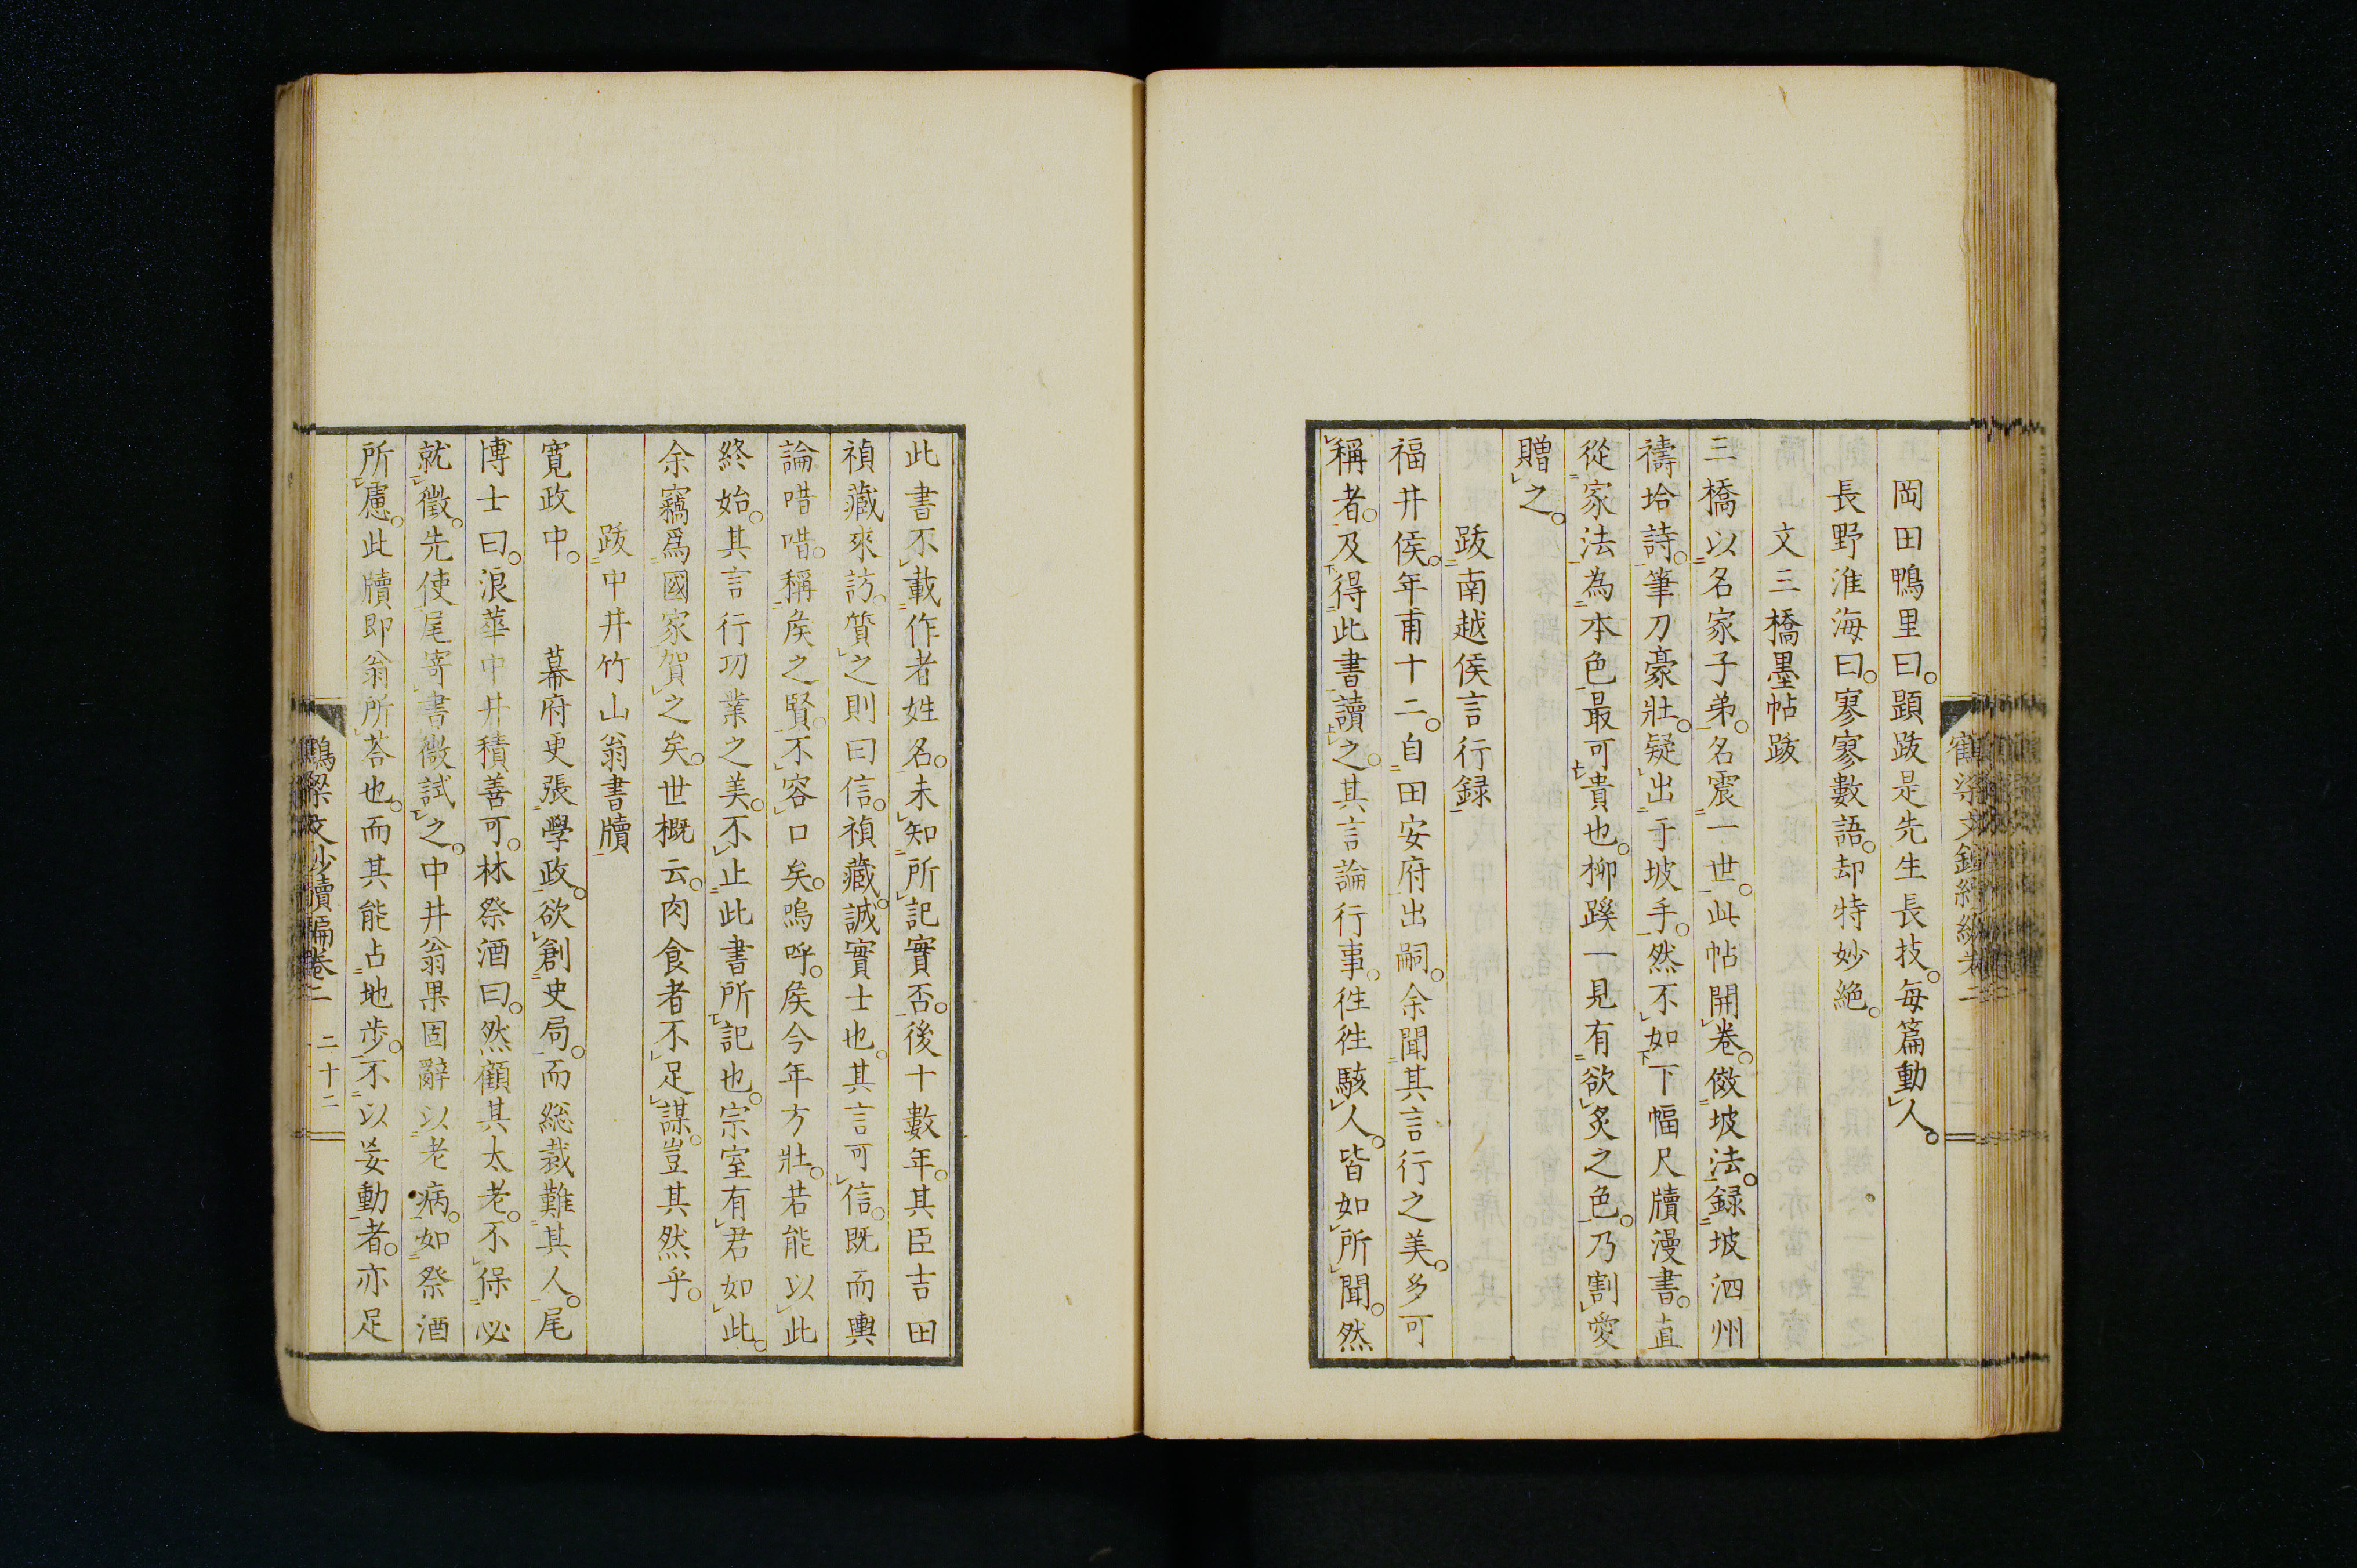 岡田鴨里曰。題跋是先生長技。每篇動人。
長野淮海曰。寥寥數語。却特妙絶。
文三橋墨帖跋
三橋以名家子弟。名震一世。此帖開卷。傚坡法。録坡泗州
禱塔詩。筆刀豪壯。疑出于坡手。然不如下幅尺牘漫書。直
從家法為本色最可貴也。柳蹊一見有欲炙之色。乃割愛
贈之。
跋南越侯言行録
福井侯。年甫十二。自田安府出嗣。余聞其言行之美。多可
稱者。及得此書讀之。其言論行事。徃徃駭人。皆如所聞。然
此書不載作者姓名。未知所記實否。後十數年。其臣吉田
禎藏來訪。質之則曰信。禎藏。誠實士也。其言可信。既而輿
論唶唶。稱矦之賢。不容口矣。嗚呼。矦今年方壯。若能以此
終始。其言行功業之美。不止此書所記也。宗室有君如此。
余竊爲國家賀之矣。世概云。肉食者不足謀。豈其然乎。
跋中井竹山翁書牘
寛政中。幕府更張學政。欲創史局。而総裁難其人。尾
博士曰。浪華中井積善可。林祭酒曰。然顧其太老。不保必
就徵。先使尾寄書微試之。中井翁果固辭以老病。如祭酒
所慮。此牘即翁所荅也。而其能占地步。不以妄動者。亦足
鶴梁文鈔續編卷二
鶴梁文鈔續編卷二 二十二